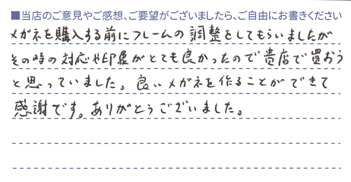 ■当店のご意見やご感想、ご要望がございましたら、ご自由にお書きください
メガネを購入する前にフレームの調整をしてもらいましたが
その時の対応や印象がとても良かったので貴店で買おう
と思っていました。良いメガネを作ることができて
感謝です。ありがとうございました。